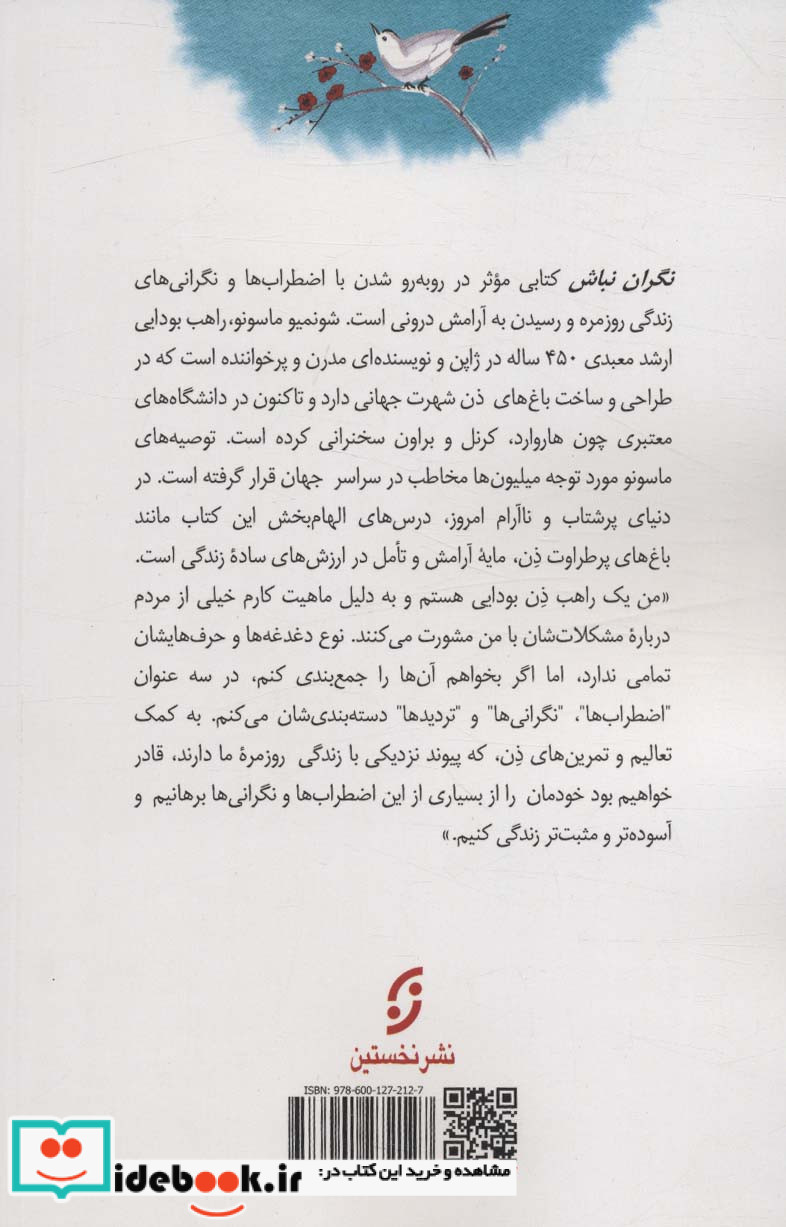 نگران نباش کتابی مؤثر در روبه‌رو شدن با اضطراب‌ها و نگرانی‌های
زندگی روزمره و رسیدن به آرامش درونی است. شونمیو ماسونو، راهب بودایی
ارشد معبدی ۴۵۰ ساله در ژاپن و نویسنده‌ای مدرن و پرخواننده است که در
طراحی و ساخت باغ‌های ذن شهرت جهانی دارد و تاکنون در دانشگاه‌های
معتبری چون هاروارد، کرنل و براون سخنرانی کرده است. توصیه‌های
ماسونو مورد توجه میلیون‌ها مخاطب در سراسر جهان قرار گرفته است. در
دنیای پرشتاب و ناآرام امروز، درس‌های الهام‌بخش این کتاب مانند
باغ‌های پرطراوت ذِن، مایهٔ آرامش و تأمل در ارزش‌های سادهٔ زندگی است.
«من یک راهب ذِن بودایی هستم و به دلیل ماهیت کارم خیلی از مردم
دربارهٔ مشکلات‌شان با من مشورت می‌کنند. نوع دغدغه‌ها و حرف‌هایشان
تمامی ندارد، اما اگر بخواهم آن‌ها را جمع‌بندی کنم، در سه عنوان
"اضطراب‌ها"، "نگرانی‌ها" و "تردیدها" دسته‌بندی‌شان می‌کنم. به کمک
تعالیم و تمرین‌های ذِن، که پیوند نزدیکی با زندگی روزمرهٔ ما دارند، قادر
خواهیم بود خودمان را از بسیاری از این اضطراب‌ها و نگرانی‌ها برهانیم و
آسوده‌تر و مثبت‌تر زندگی کنیم.»
نشر نخستین
ISBN: 978-600-127-212-7
مشاهده و خرید این کتاب در:
idebook.ir